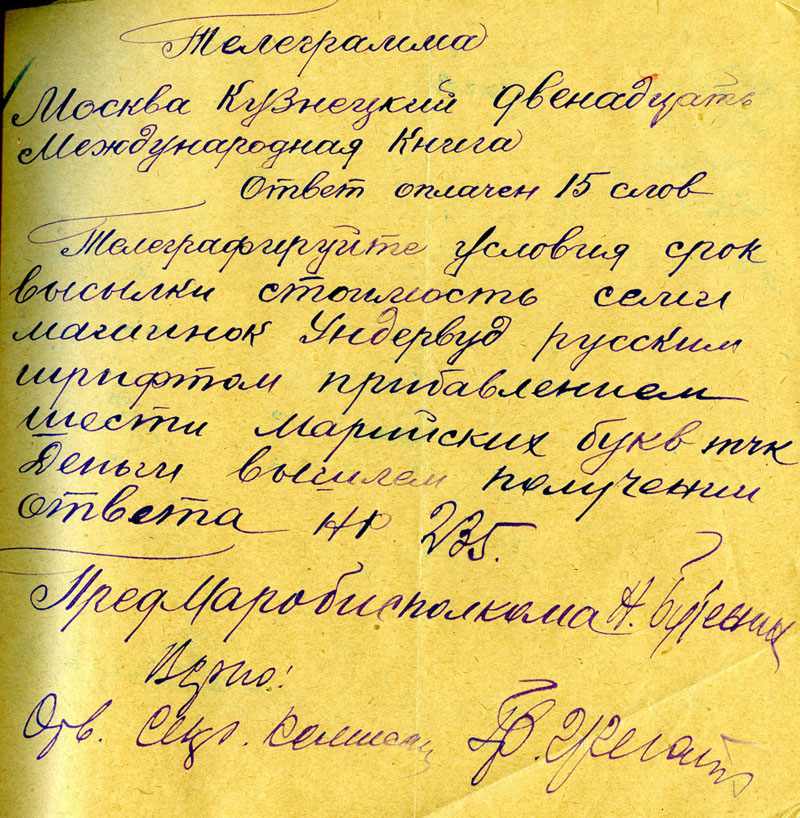 Телеграмма
Москва Кузнецкий двенадцать
Международная Книга
Ответ оплачен 15 слов
Телеграфируйте условия срок
высылки стоимость семи
машинок Ундервуд русским
шрифтом прибавлением
шести Марийских букв тчк
Деньги вышлем получении
ответа НР. 235.
ПредМаробисполкома Н. Бутенин
Верно!
Отв. Секр. Комиссии